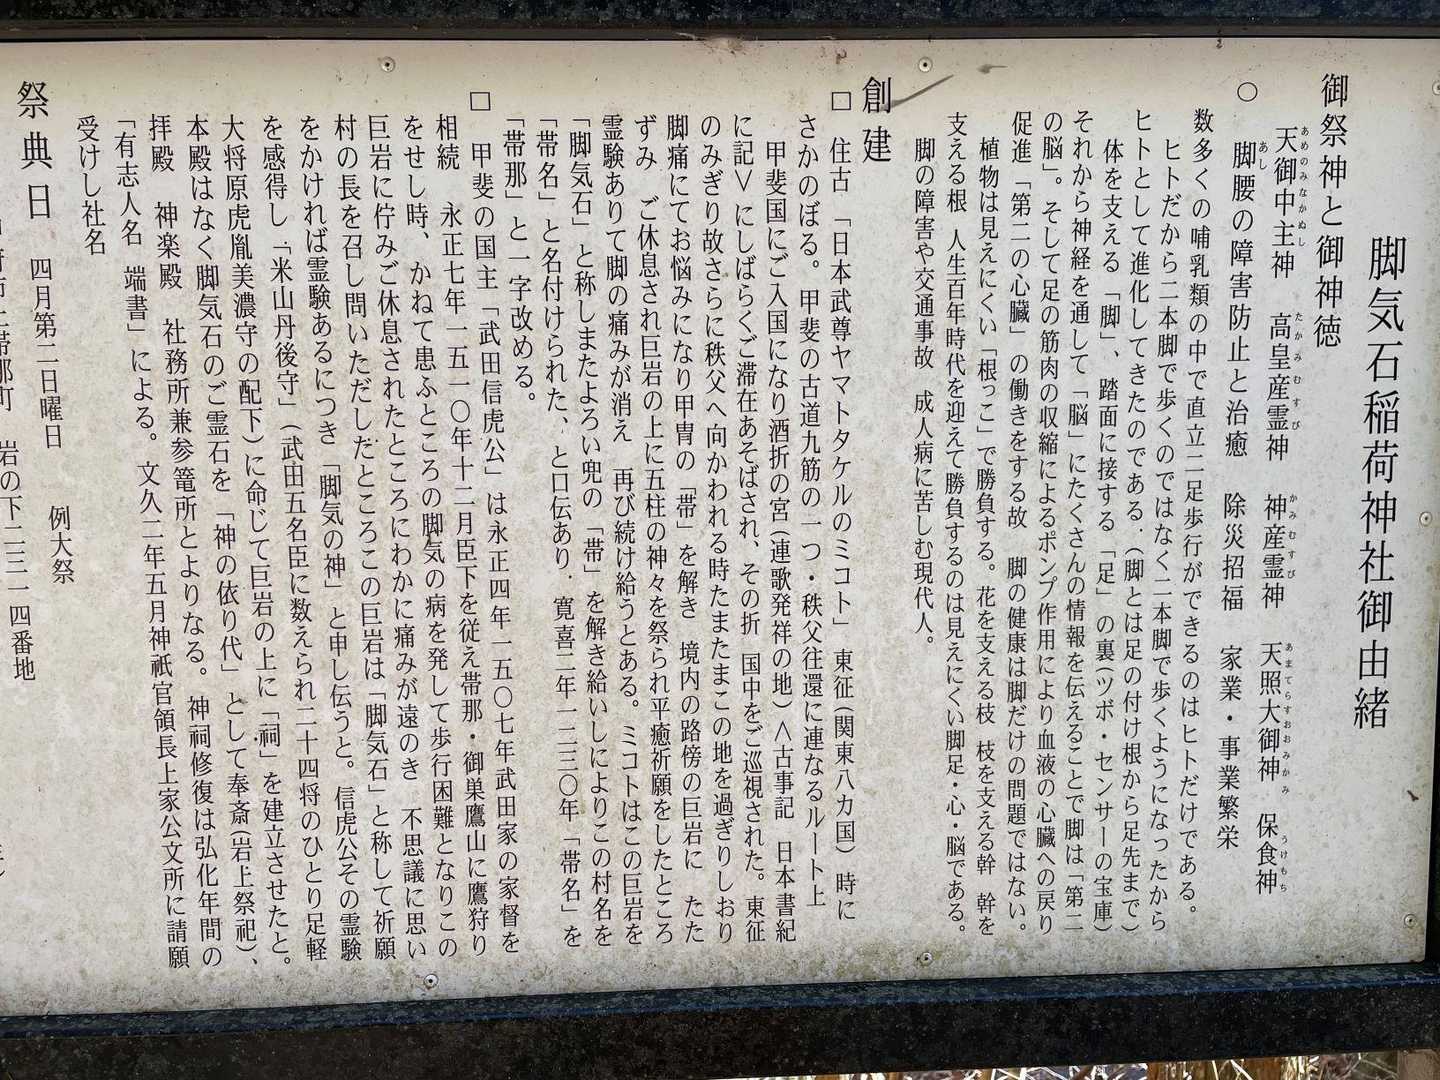 脚気石稲荷神社御由緒
御祭神と御神徳
天御中主神　高皇産霊神　神産霊神　天照大御神　保食神
あめのみなかぬし　たかみむすび　かみむすび　あまてらすおおみかみ　うけもち
○　脚腰の障害防止と治癒　除災招福　家業・事業繁栄
あし
数多くの哺乳類の中で直立二足歩行ができるのはヒトだけである。
ヒトだから二本脚で歩くのではなく二本脚で歩くようになったから
ヒトとして進化してきたのである．(脚とは足の付け根から足先まで)
体を支える「脚」、踏面に接する「足」の裏(ツボ・センサーの宝庫)
それから神経を通して「脳」にたくさんの情報を伝えることで脚は「第二
の脳」。そして足の筋肉の収縮によるポンプ作用により血液の心臓への戻り
促進「第二の心臓」の働きをする故　脚の健康は脚だけの問題ではない。
植物は見えにくい「根っこ」で勝負する。花を支える枝　枝を支える幹　幹を
支える根　人生百年時代を迎えて勝負するのは見えにくい脚足・心・脳である。
脚の障害や交通事故　成人病に苦しむ現代人。
創建
□　往古　「日本武尊ヤマトタケルのミコト」東征(関東八カ国)　時に
さかのぼる。甲斐の古道九筋の一つ・秩父往還に連なるルート上
甲斐国にご入国になり酒折の宮(連歌発祥の地)＜古事記　日本書紀
に記＞にしばらくご滞在あそばされ、その折　国中をご巡視された。東征
のみぎり故さらに秩父へ向かわれる時たまたまこの地を過ぎりしおり
脚痛にてお悩みになり甲冑の「帯」を解き　境内の路傍の巨岩に　たた
ずみ　ご休息され巨岩の上に五柱の神々を祭られ平癒祈願をしたところ
霊験ありて脚の痛みが消え　再び続け給うとある。ミコトはこの巨岩を
「脚気石」と称しまたよろい兜の「帯」を解き給いしによりこの村名を
「帯名」と名付けられた、と口伝あり．寛喜二年一二三〇年「帯名」を
「帯那」と一字改める。
□　甲斐の国主「武田信虎公」は永正四年一五〇七年武田家の家督を
相続　永正七年一五一〇年十二月臣下を従え帯那・御巣鷹山に鷹狩り
をせし時、かねて患ふところの脚気の病を発して歩行困難となりこの
巨岩に佇みご休息されたところにわかに痛みが遠のき　不思議に思い
村の長を召し問いただしたところこの巨岩は「脚気石」と称して祈願
をかければ霊験あるにつき「脚気の神」と申し伝うと。信虎公その霊験
を感得し「米山丹後守」(武田五名臣に数えられ二十四将のひとり足軽
大将原虎胤美濃守の配下)に命じて巨岩の上に「祠」を建立させたと。
本殿はなく脚気石のご霊石を「神の依り代」として奉斎(岩上祭祀)、
拝殿　神楽殿　社務所兼参篭所とよりなる。神祠修復は弘化年間の
「有志人名　端書」による。文久二年五月神祇官領長上家公文所に請願
受けし社名
祭典日　四月第二日曜日　例大祭
帯那町　岩の下二三一四番地